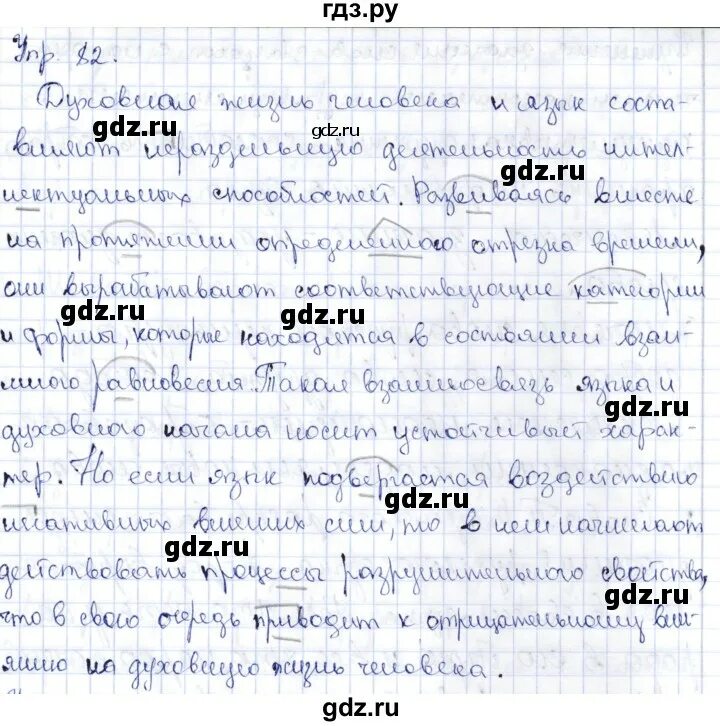 гдз.ру
Упр. 82.
Духовная жизнь человека и язык соста-
вляют нераздельную деятельность интел-
лектуальных способностей. Развиваясь вместе
на протяжении определённого отрезка времени,
они вырабатывают соответствующие категории
и формы, которые находятся в состоянии взаи-
много равновесия. Такая взаимосвязь языка и
духовного начала носит устойчивый харак-
тер. Но если язык подвергается воздействию
негативных внешних сил, то в нем начинают
действовать процессы разрушительного свойства,
что в свою очередь приводит к отрицательному вли-
янию на духовную жизнь человека.
gdz.ru
gdz.ru
gdz.ru
gdz.ru
gdz.ru
gdz.ru
gdz.ru
gdz.ru
gdz.ru
gdz.ru
gdz.ru
gdz.ru
gdz.ru
gdz.ru